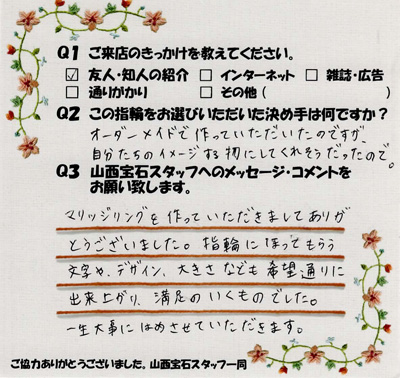 Q1 ご来店のきっかけを教えてください。
☑ 友人・知人の紹介 □ インターネット □ 雑誌・広告
□ 通りがかり □ その他( )
Q2 この指輪をお選びいただいた決め手は何ですか？
オーダーメイドで作っていただいたのですが、
自分たちのイメージする物にしてくれそうだったので。
Q3 山西宝石スタッフへのメッセージ・コメントを
お願い致します。
マリッジリングを作っていただきましてありが
とうございました。指輪にほってもらう
文字や、デザイン、大きさなども希望通りに
出来上がり、満足のいくものでした。
一生大事にはめさせていただきます。
ご協力ありがとうございました。山西宝石スタッフ一同